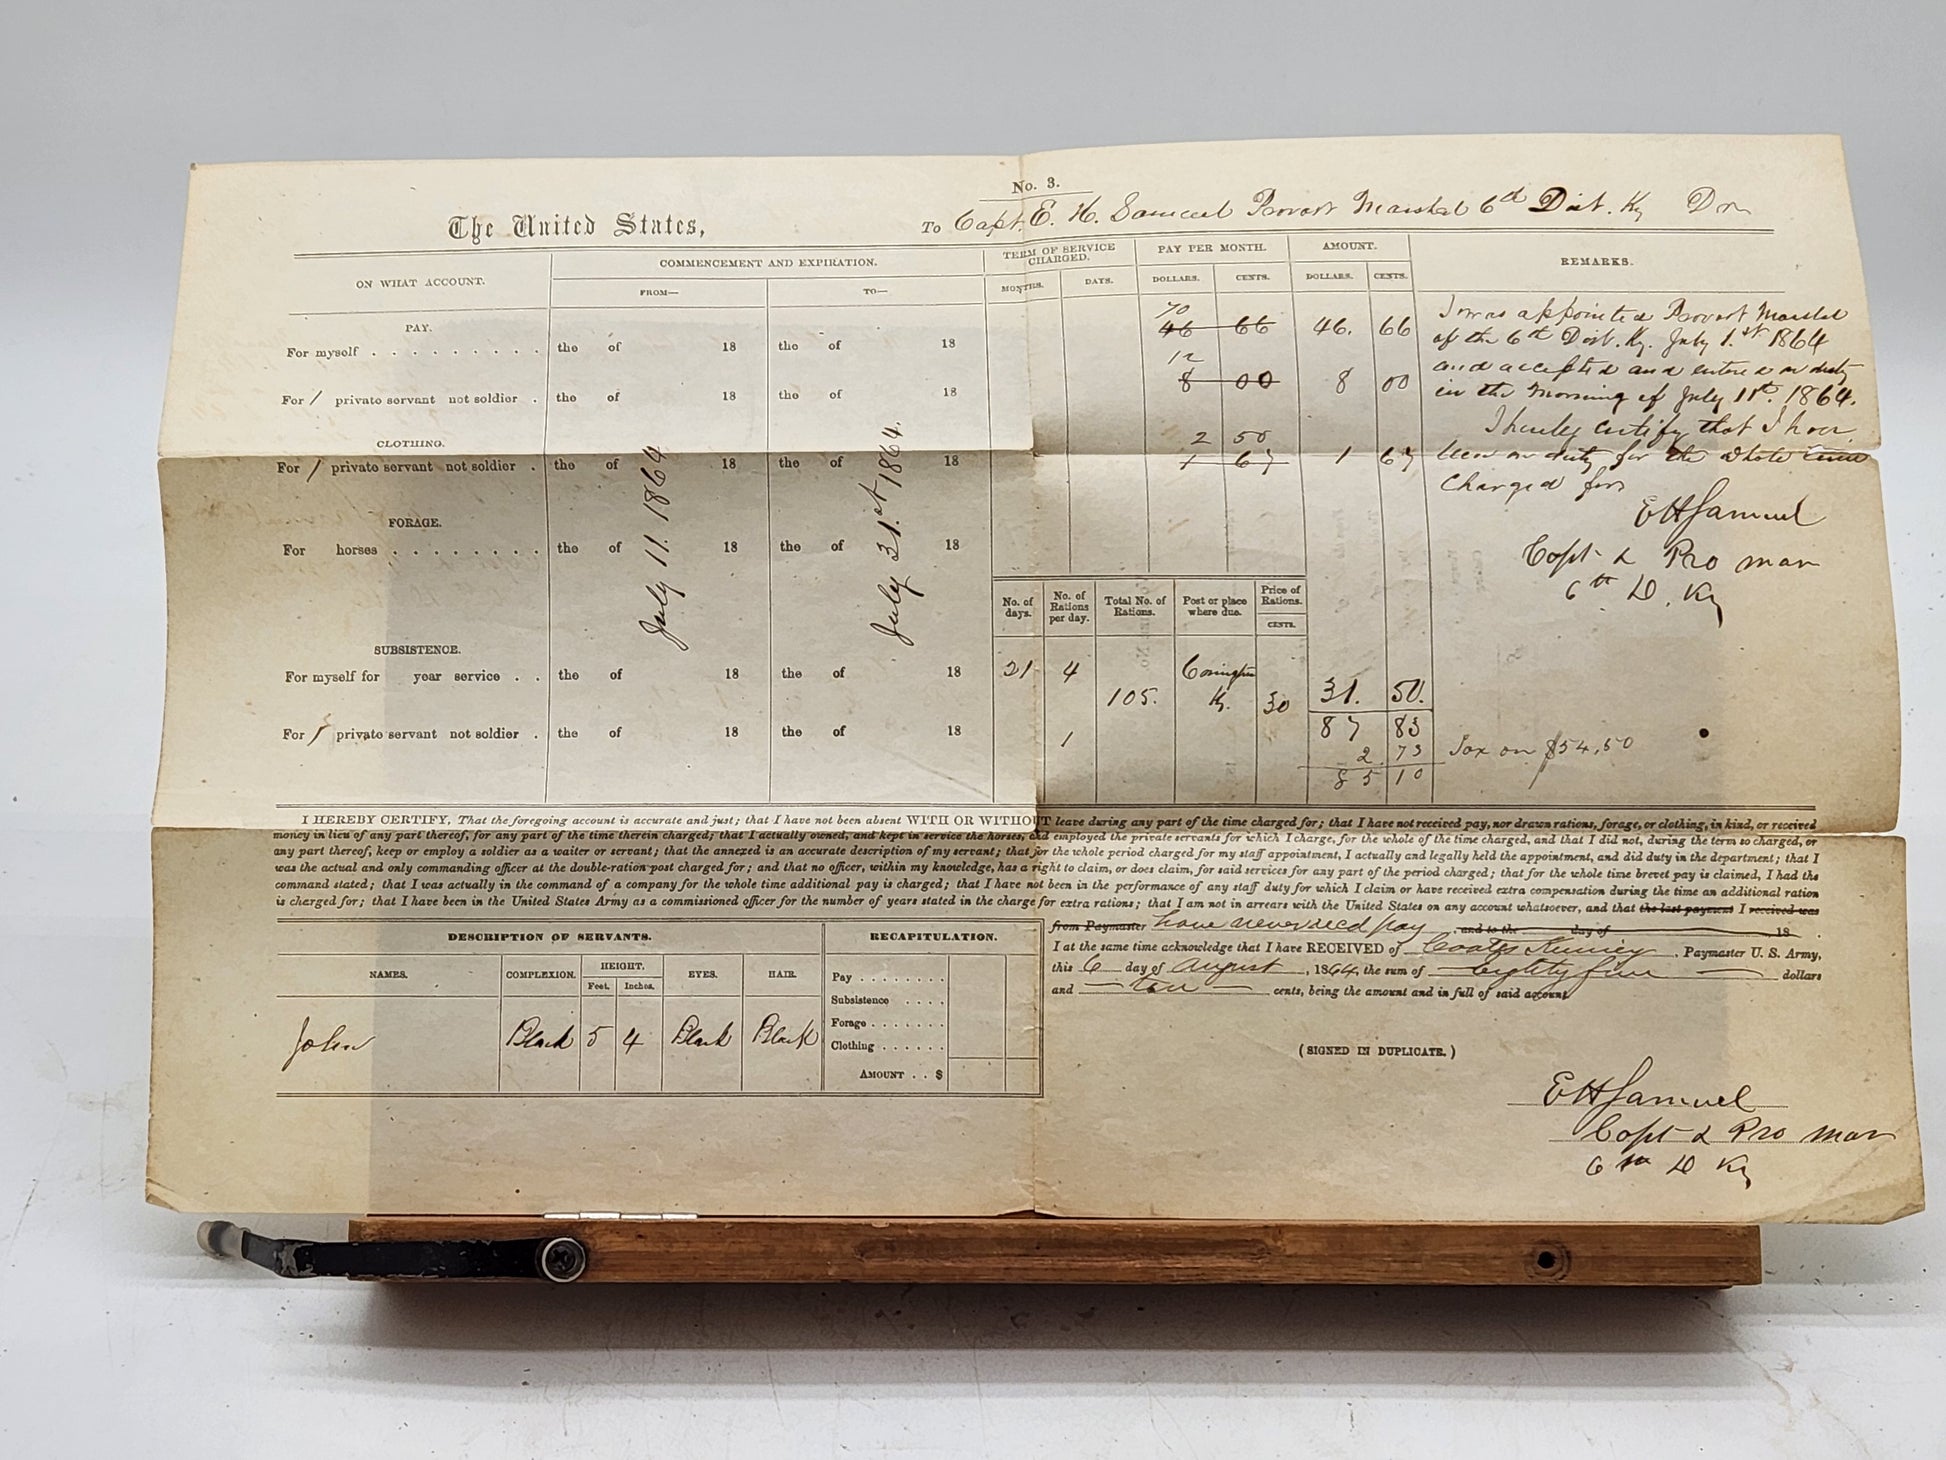 No. 3.
The United States, To Capt. E. H. Samuel Provost Marshal 6th Dist. Ky Dr
ON WHAT ACCOUNT. COMMENCEMENT AND EXPIRATION. TERM OF SERVICE CHARGED. PAY PER MONTH. AMOUNT. REMARKS.
FROM— TO— MONTHS. DAYS. DOLLARS. CENTS. DOLLARS. CENTS.
PAY.
70
For myself . . . . . . . . . the of 18 the of 18 46 66 46. 66
12
For 1 private servant not soldier . the of 18 the of 18 8 00 8 00
CLOTHING.
2 50
For 1 private servant not soldier . the of 18 the of 18 1 67 1 67
FORAGE.
For horses . . . . . . . . the of 18 the of 18
July 11. 1864
July 31.st 1864.
I was appointed Provost Marshal
of the 6th Dist. Ky. July 1.st 1864
and accepted and entered on duty
in the Morning of July 11th. 1864.
I hereby certify that I have
been on duty for the whole time
Charged for
EHSamuel
Capt & Pro Mar
6th D. Ky
No. of days. No. of Rations per day. Total No. of Rations. Post or place where due. Price of Rations.
CENTS.
SUBSISTENCE.
For myself for year service . . the of 18 the of 18 21 4 Covington
105. Ky. 30 31. 50.
For 1 private servant not soldier . the of 18 the of 18 1 87 83
2. 73 Tax on $54,50
85 10
I HEREBY CERTIFY, That the foregoing account is accurate and just; that I have not been absent WITH OR WITHOUT leave during any part of the time charged for; that I have not received pay, nor drawn rations, forage, or clothing, in kind, or received
money in lieu of any part thereof, for any part of the time therein charged; that I actually owned, and kept in service the horses, and employed the private servants for which I charge, for the whole of the time charged, and that I did not, during the term so charged, or
any part thereof, keep or employ a soldier as a waiter or servant; that the annexed is an accurate description of my servant; that for the whole period charged for my staff appointment, I actually and legally held the appointment, and did duty in the department; that I
was the actual and only commanding officer at the double-ration post charged for; and that no officer, within my knowledge, has a right to claim, or does claim, for said services for any part of the period charged; that for the whole time brevet pay is claimed, I had the
command stated; that I was actually in the command of a company for the whole time additional pay is charged; that I have not been in the performance of any staff duty for which I claim or have received extra compensation during the time an additional ration
is charged for; that I have been in the United States Army as a commissioned officer for the number of years stated in the charge for extra rations; that I am not in arrears with the United States on any account whatsoever, and that the last payment I received was
from Paymaster have never recd pay and to the day of 18 .
I at the same time acknowledge that I have RECEIVED of Coates Kinney, Paymaster U. S. Army,
this 6 day of August, 1864, the sum of eighty five dollars
and ten cents, being the amount and in full of said account.
DESCRIPTION OF SERVANTS. RECAPITULATION.
NAMES. COMPLEXION. HEIGHT. EYES. HAIR.
Feet. Inches.
John Black 5 4 Black Black
Pay . . . . . . . .
Subsistence . . . .
Forage . . . . . . .
Clothing . . . . . .
AMOUNT . . $
(SIGNED IN DUPLICATE.)
EHSamuel
Capt & Pro Mar
6th D Ky